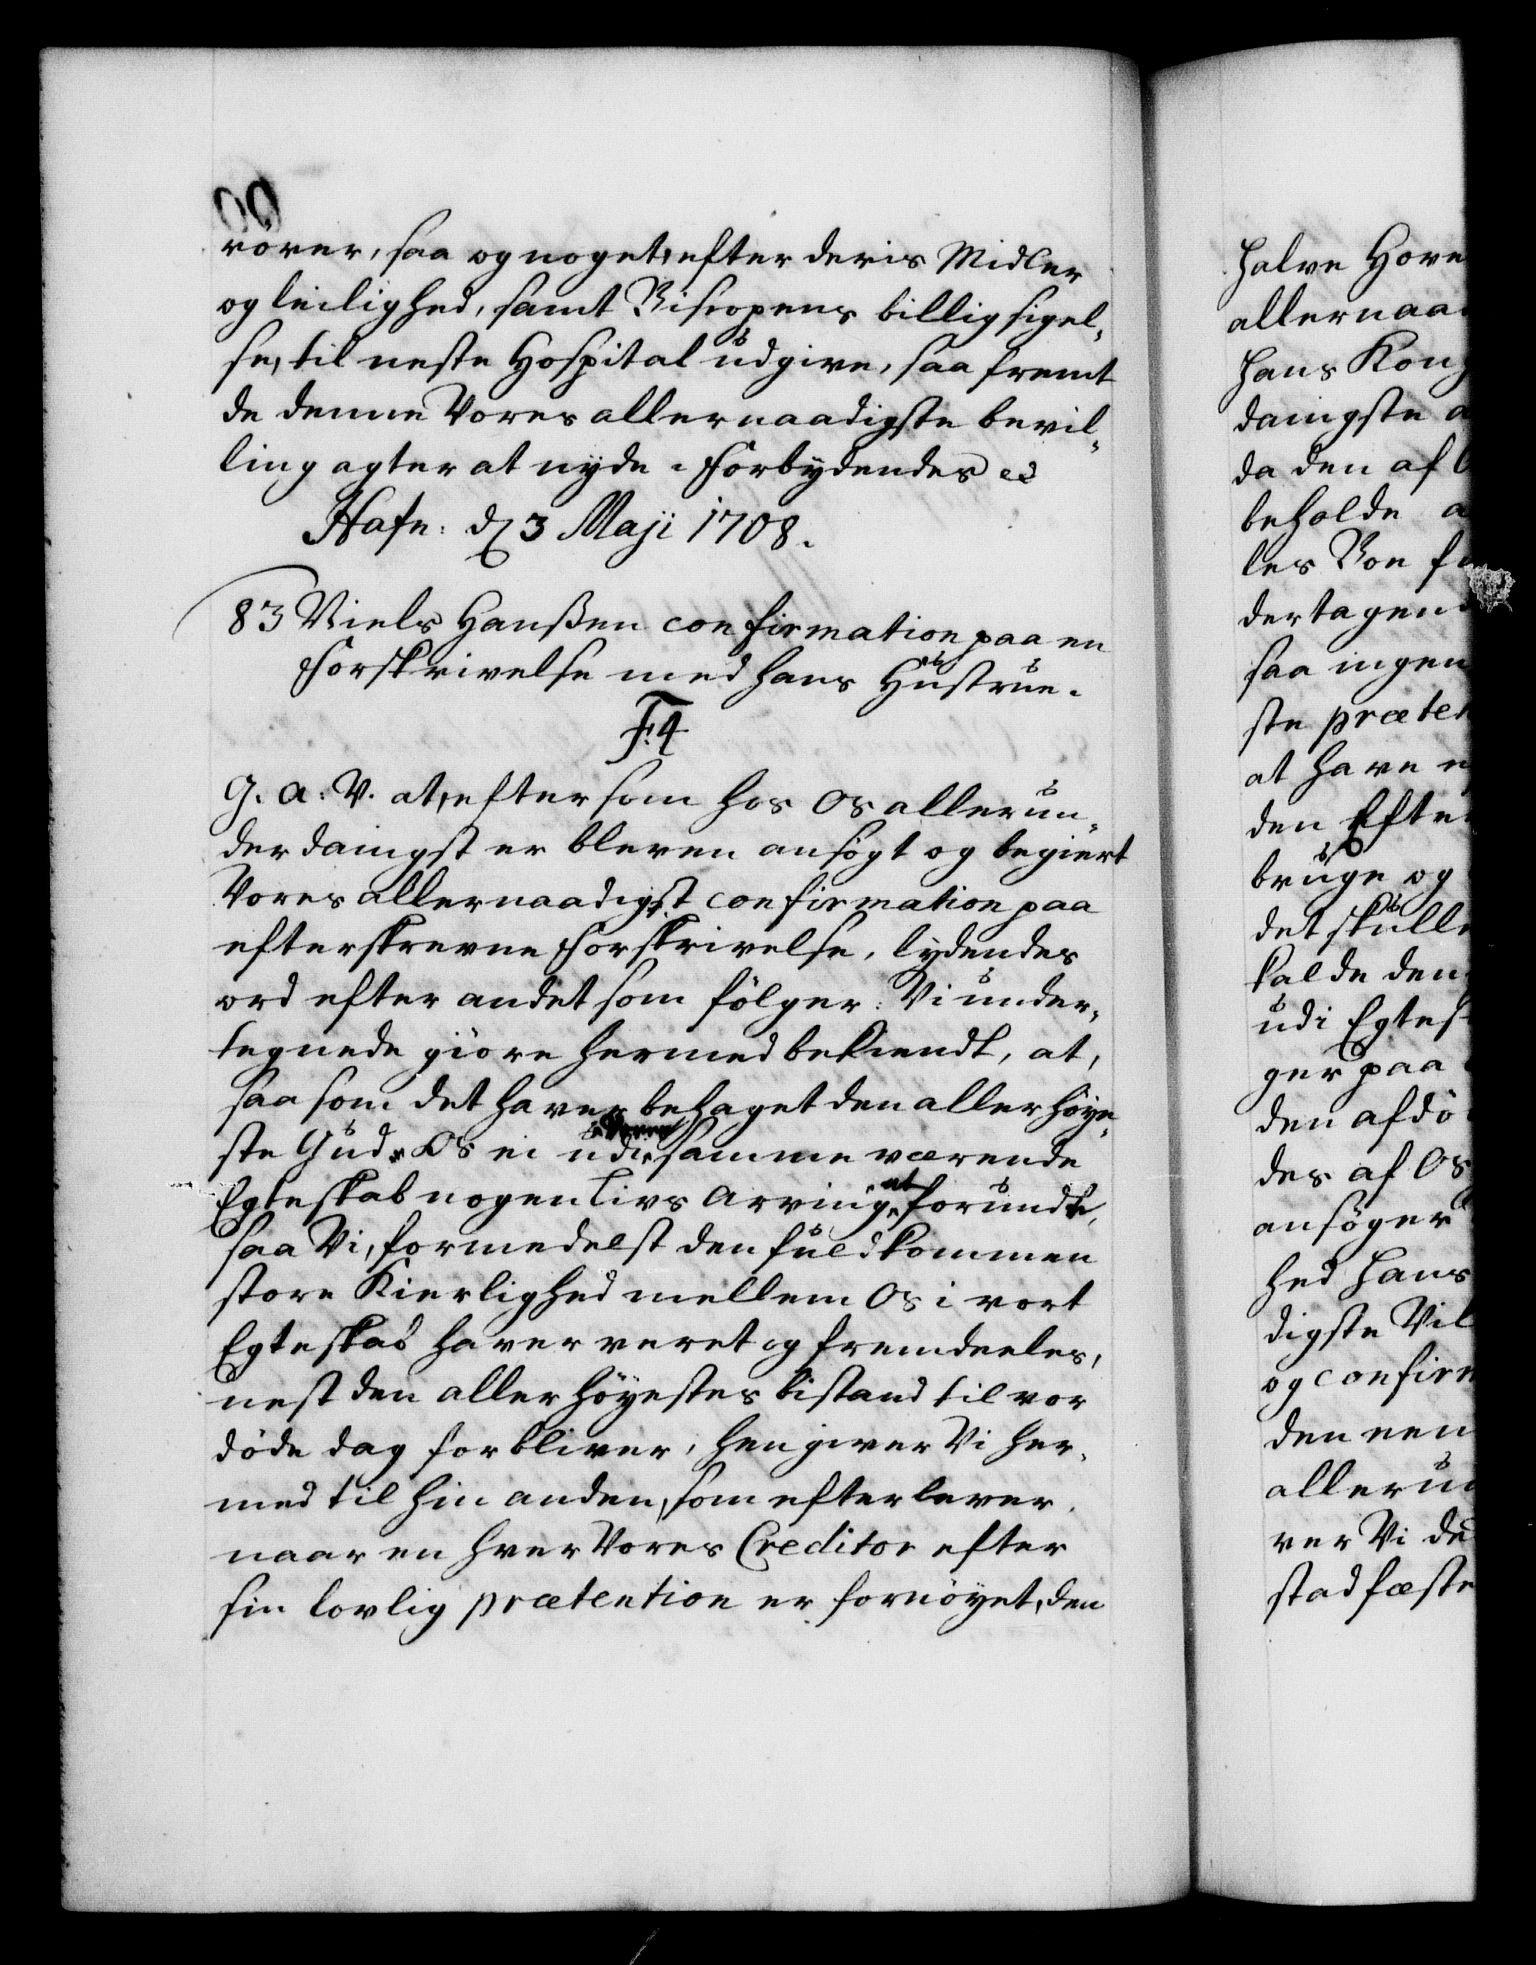 rörer, saa og noget, efter deris Midler
og leilighed, samt Biscopens billig sigel-
se, til neste Hospital udgive, saa fremt
de denne Vores allernaadigste bevil-
ling agter at nyde. Forbydendes etc
Hafn: d 3 Maji 1708.
83 Niels Hanßen confirmation paa en
Forskrivelse med hans Hustrue.
F:4
G. a: V. at, eftersom hos Os allerun-
derdanigst er bleven ansögt og begiert
Vores allernaadigst confirmation paa
efterskrevne Forskrivelse, lydendes
ord efter andet som fölger: Vi under-
tegnede giöre hermed bekiendt, at,
saasom det haver behaget den allerhöye-
ste Gud Os ei udi samme værende
Egteskab nogen Livs Arving at forundte,
saa Vi, formedelst den fuldkommen
store Kierlighed mellem Os i vort
Egteskab haver veret og fremdeeles,
nest den allerhöyestes bistand til vor
döde dag forbliver, hengiver Vi her-
med til hin anden, som efterlever,
naar en hver Vores Creditor efter
sin lovlig prætention er fornöyet, den
halve Hove
allernaa
hans Kong
danigste a
da den af
beholde a
les Boe
dertagen
saa ingen
ste præten
at have
den Efte
bruge og
det skulle
falde den
udi Egtes
ger paa
den afdö
des af Os
ansöger
hed hans
digste Vil
og confirm
den een
allerun
ver Vi de
stadfæste